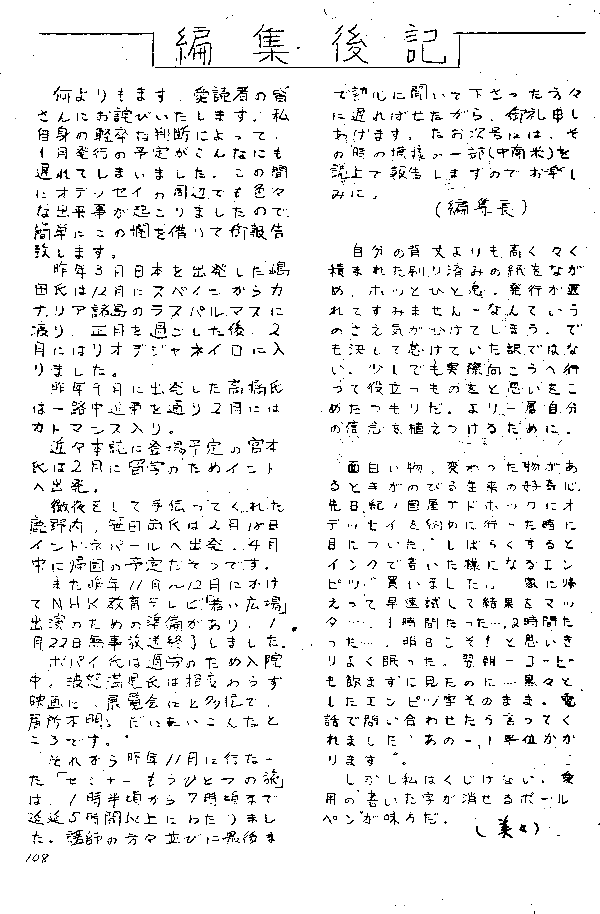 編集後記
何よりもまず、愛読者の皆
さんにお詫びいたします。私
自身の軽率な判断によって、
1月発行の予定がこんなにも
遅れてしまいました。この間
にオデッセイの周辺でも色々
な出来事が起こりましたので
簡単にこの欄を借りて御報告
致します。
昨年3月日本を出発した嶋
田氏は12月にスペインからカ
ナリア諸島のラスパルマスに
渡り、正月を過ごした後、2
月にはリオデジャネイロに入
りました。
昨年9月に出発した高橋氏
は一路中近東を通り2月には
カトマンズ入り。
近々本誌に登場予定の宮本
氏は2月に留学のためイント
へ出発。
徹夜をして手伝ってくれた
鹿野内、笹田両氏は2月18日
インドネパールへ出発、4月
中に帰国の予定だそうです。
また昨年11月〜12月にかけ
てNHK教育テレビ「若い広場」
出演のための準備があり、1
月22日無事放送終了しました。
ポパイ氏は過労のため入院
中、波怒満児氏は相変わらず
映画に、展覧会にと多忙で、
居所不明。だいたいこんなと
ころです。
それから昨年11月に行なっ
た「セミナーもうひとつの旅」
は、1時半頃から7時頃まで
延延5時間以上にわたりまし
た。講師の方々並びに最後ま
で熱心に聞いて下さった方々
に遅ればせながら、御礼申し
あげます。なお次号には、そ
の時の模様の一部(中南米)を
誌上で報告しますのでお楽し
みに。
(編集長)
自分の背丈よりも高く々く
積まれた刷り済みの紙をなが
め、ホッとひと息。発行が遅
れてすみません‥なんていう
のさえ気がひけてしまう。で
も決して怠けていた訳ではな
い。少しでも実際向こうへ行
って役立つものをと思いをこ
めたつもりだ。より一層自分
の信念を植えつけるために。
面白い物、変わった物があ
るときがのびる生来の好奇心。
先日紀ノ國屋アドホックにオ
デッセイを納めに行った時に
目についた“しばらくすると
インクで書いた様になるエン
ピツ”買いました。家に帰
えって早速試して結果をマッ
タ…、1時間たった…、2時間た
った…、明日こそ!と思いき
りよく眠った。翌朝−コーヒー
も飲まずに見たのに…黒々と
したエンピツ字そのまま。電
話で問い合わせたら言ってく
れました“あの−、1年位かか
ります”。
しかし私はくじけない。愛
用の“書いた字が消せるボール
ペン”が味方だ。
(美々)
108